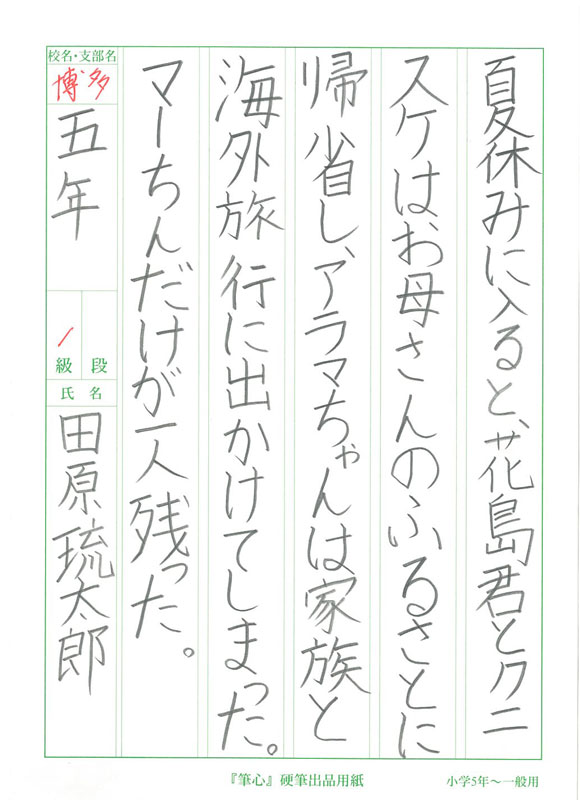 夏休みに入ると、花島君とクニ
スケはお母さんのふるさとに
帰省し、アラマちゃんは家族と
海外旅行に出かけてしまった。
マーちんだけが一人残った。
校名・支部名
博多
五年
1
級 段
氏名
田原琉太郎
『筆心』硬筆出品用紙
小学5年〜一般用